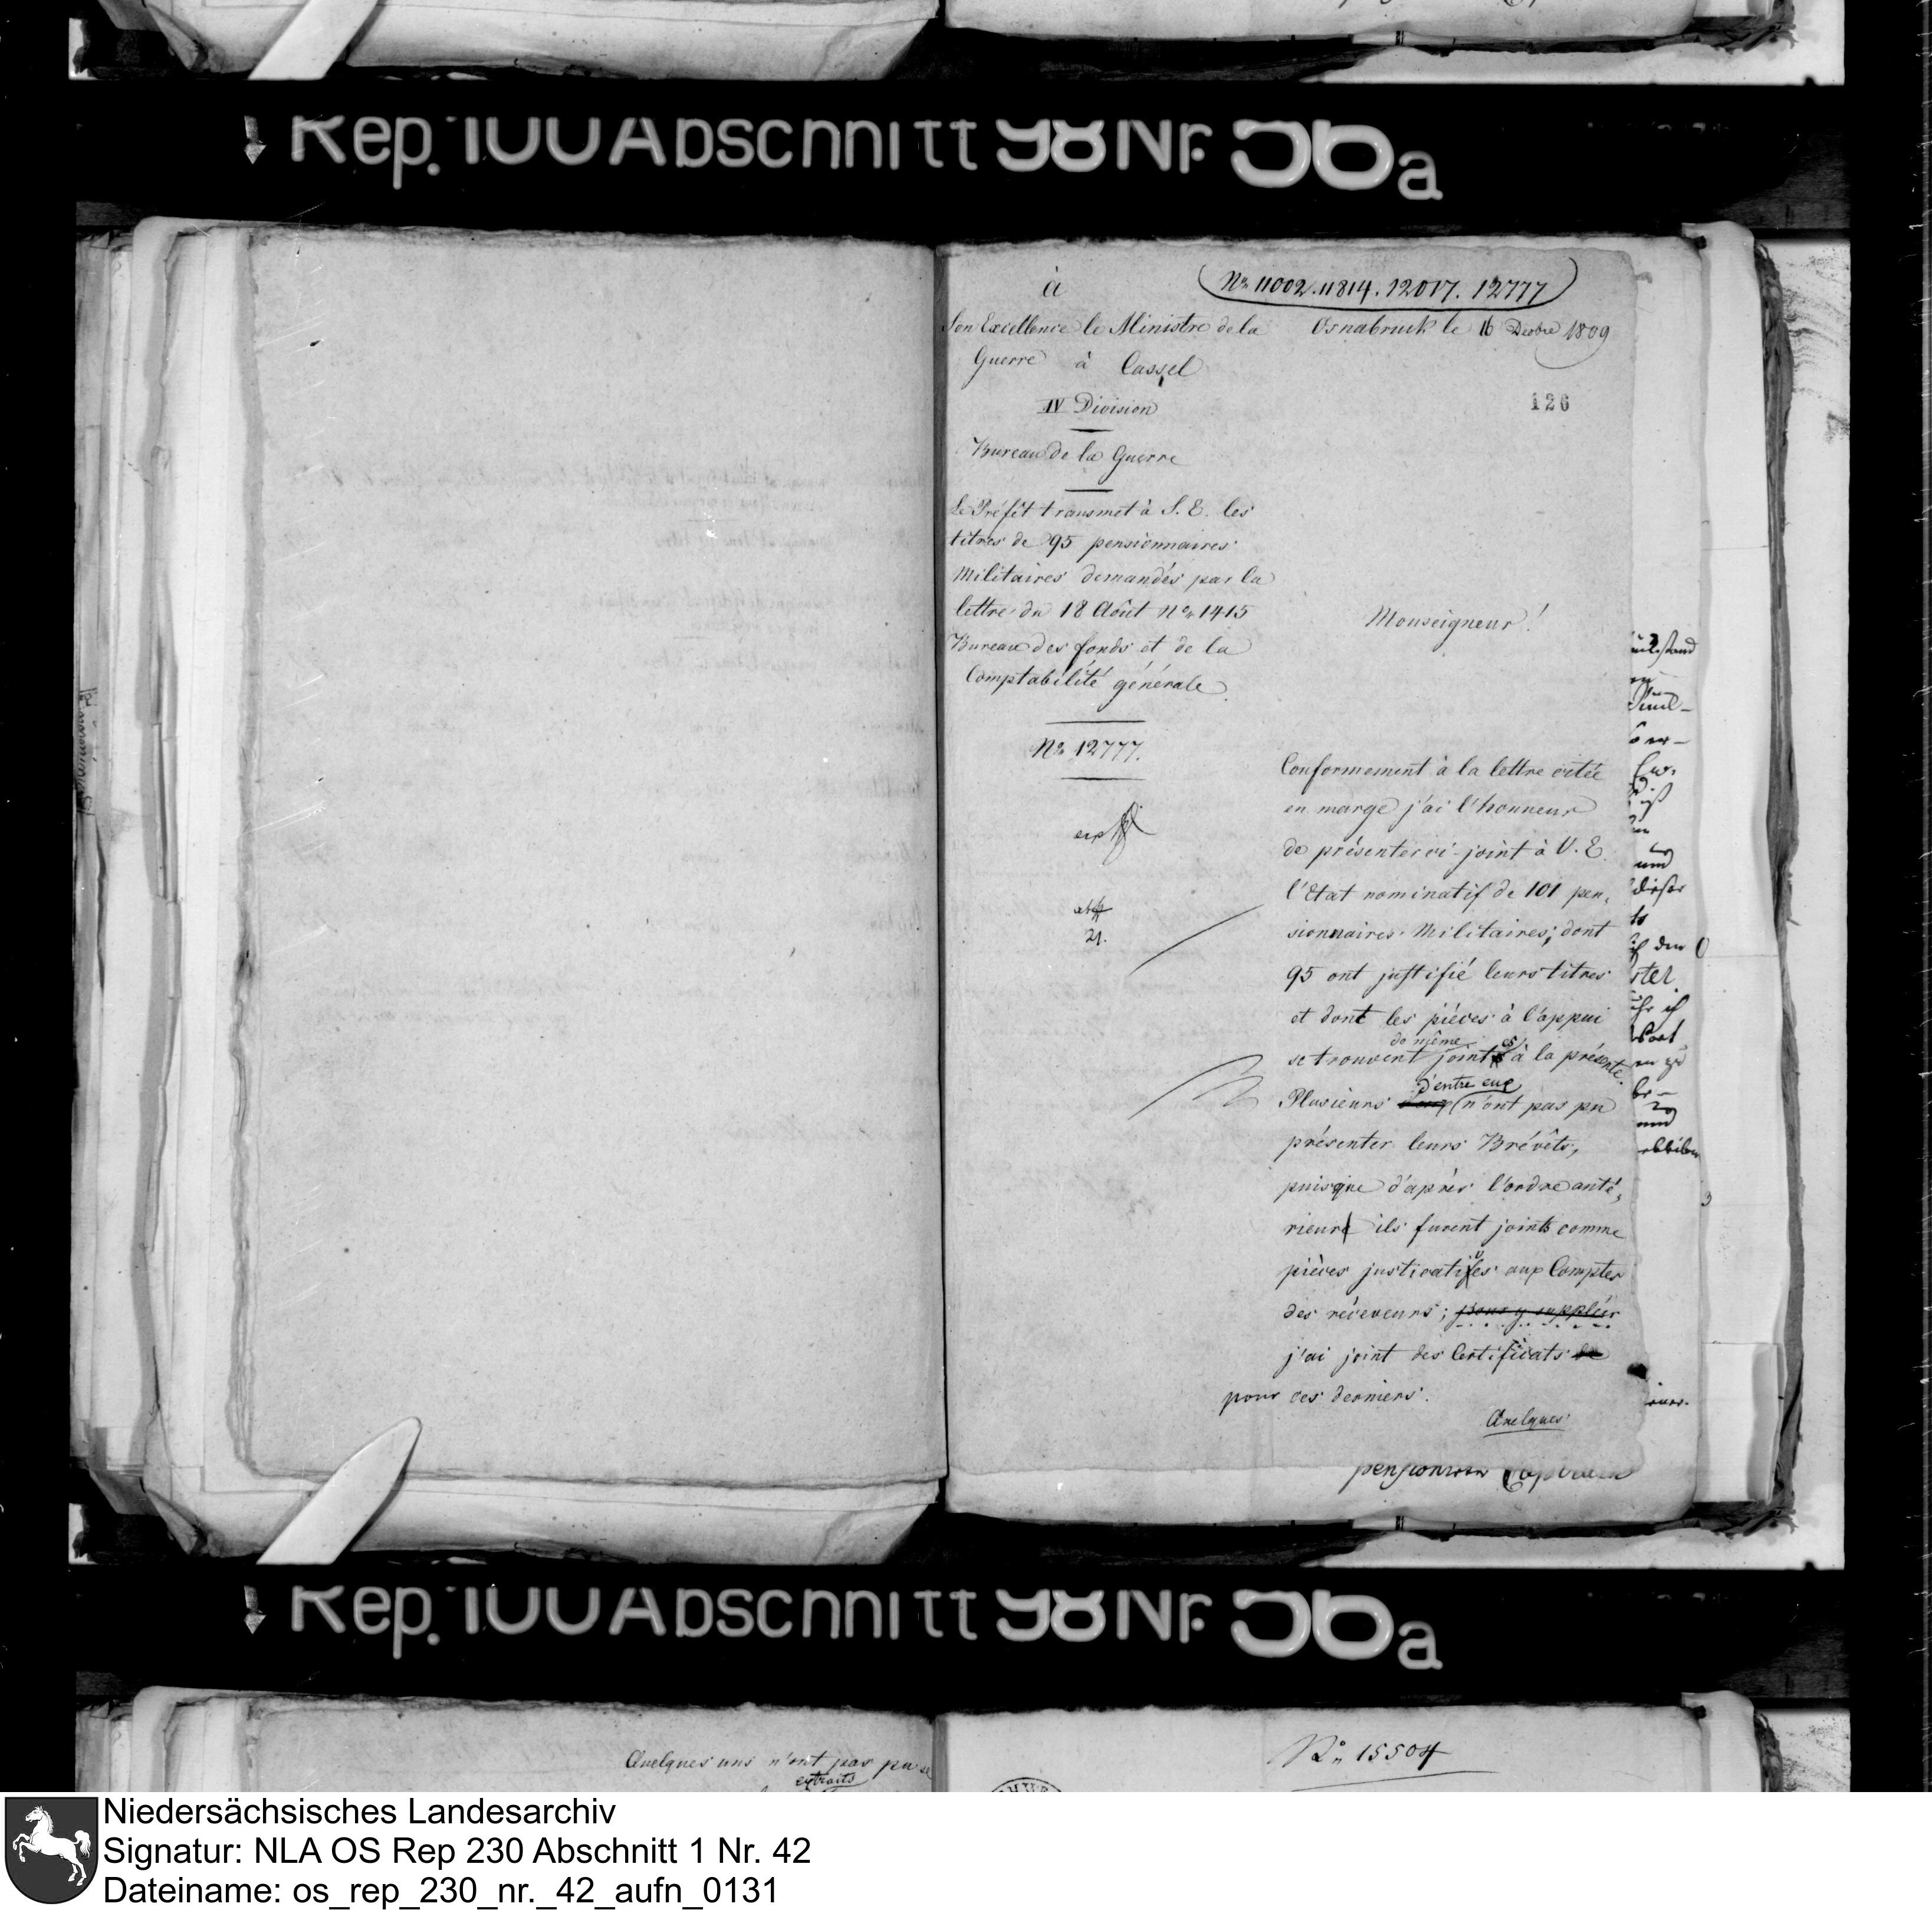 Rep. 100 Abschnitt 98 Nr. 56a
à
Nro 11002. 11814. 12017. 12777
Son Excellence le Ministre de la
Guerre à Cassel
Osnabruck le 16 Decbre 1809
126
IV Division
Bureau de la Guerre
Le Préfêt transmet à S. E. les
titres de 95 pensionnaires
Militaires demandés par la
lettre du 18 Août No 1415
Bureau des fonds et de la
Comptabilité générale
No 12777.
21.
Monseigneur!
Conformement à la lettre citée
en marge j'ai l'honneur
de présenter ci-joint à V. E.
l'Etat nominatif de 101 pen,
sionnaires Militaires; dont
95 ont justifié leurs titres
et dont les piéces à l'appui
de même
se trouvent joints à la présente.
d'entre eux
Plusieurs n'ont pas pu
présenter leurs Brévêts,
puisque d'après l'ordre anté,
rieure ils furent joints comme
pièces justicatives aux Comptes
des réceveurs; pour y suppléer
j'ai joint des Certificats de
pour ces derniers.
Quelques
pensionnen
Rep. 100 Abschnitt 98 Nr. 56a
Quelques uns n'ont pas pu se
extraits
No 15504
Niedersächsisches Landesarchiv
Signatur: NLA OS Rep 230 Abschnitt 1 Nr. 42
Dateiname: os_rep_230_nr._42_aufn_0131